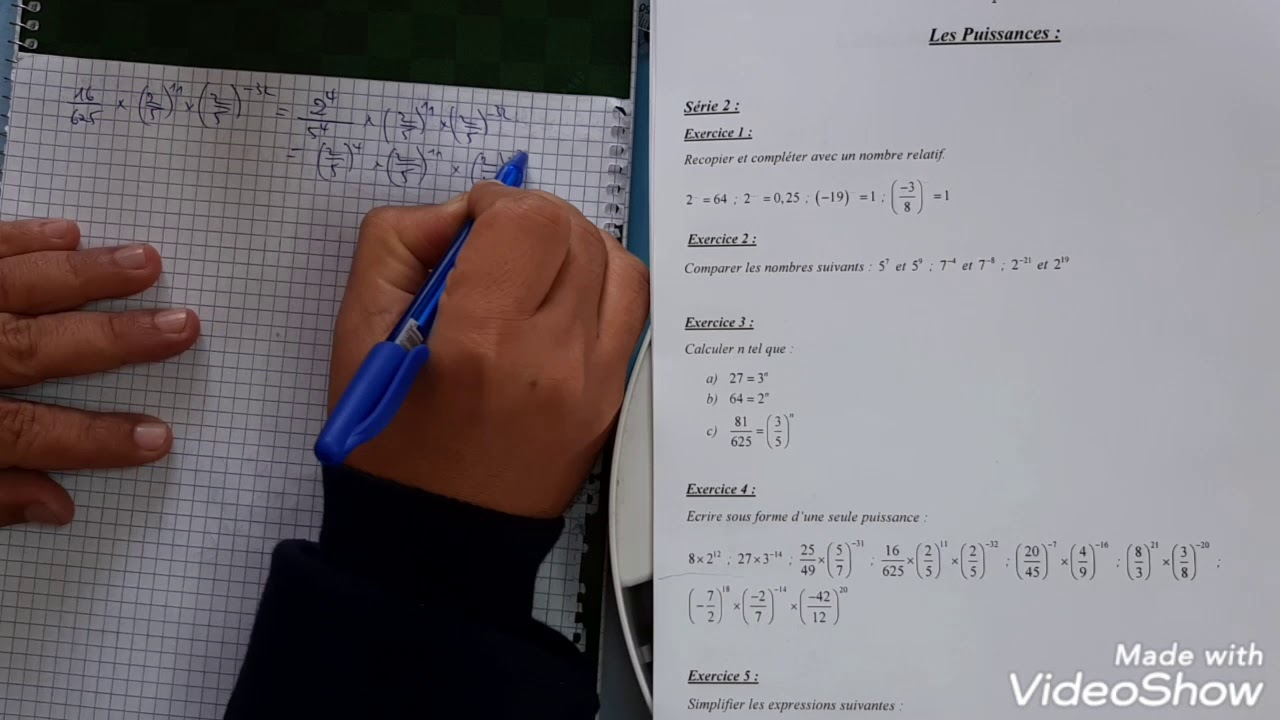 16/625 × (2/5)^11 × (2/5)^-32 = 2^4/5^4 × (2/5)^11 × (2/5)^-32
= (2/5)^4 × (2/5)^11 × (2
Les Puissances :
Série 2 :
Exercice 1 :
Recopier et compléter avec un nombre relatif.
2^… = 64 ; 2^… = 0,25 ; (−19)^… = 1 ; (−3/8)^… = 1
Exercice 2 :
Comparer les nombres suivants : 5^7 et 5^9 ; 7^−4 et 7^−8 ; 2^−21 et 2^19
Exercice 3 :
Calculer n tel que :
a) 27 = 3^n
b) 64 = 2^n
c) 81/625 = (3/5)^n
Exercice 4 :
Ecrire sous forme d'une seule puissance :
8×2^12 ; 27×3^−14 ; 25/49 × (5/7)^−31 ; 16/625 × (2/5)^11 × (2/5)^−32 ; (20/45)^−7 × (4/9)^−16 ; (8/3)^21 × (3/8)^−20 ;
(−7/2)^18 × (−2/7)^−14 × (−42/12)^20
Exercice 5 :
Simplifier les expressions suivantes :
Made with
VideoShow